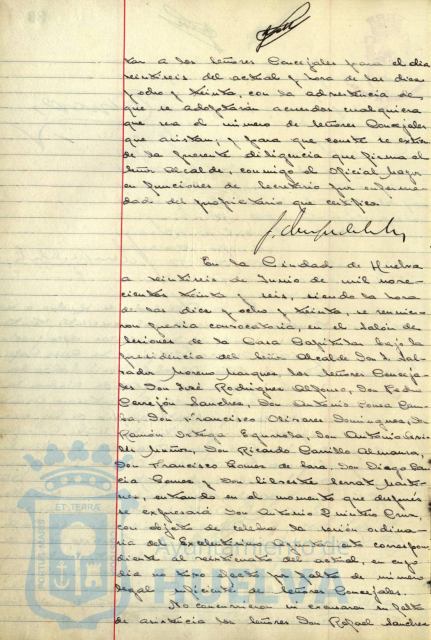 tar a los señores Concejales para el dia
veintiseis del actual y hora de las diez
y ocho y treinta, con la advertencia de
que se adoptarán acuerdos cualquiera
que sea el número de señores Concejales
que asistan, y para que conste se extien
de la presente diligencia que firma el
señor Alcalde, conmigo el Oficial Mayor
en funciones de Secretario por enferme
dad del propietario que certifico.
En la Ciudad de Huelva
a veintiseis de Junio de mil nove-
cientos treinta y seis, siendo la hora
de las diez y ocho y treinta, se reunie-
ron previa convocatoria, en el Salón de
sesiones de la Casa Capitular bajo la
presidencia del señor Alcalde Don Sal-
vador Moreno Marquez los señores Conceja-
les Don José Rodriguez Alfonso, Don Pedro
Cerrejón Sanchez, Don Antonio
Don Francisco Olivares Dominguez, Don
Ramón Ortega Ezquerola, Don Antonio
Muñoz, Don Ricardo Carrillo Almansa,
Don Francisco Gomez de Lara, Don Diego Gar
cia Gomez y Don Liberato Serrat
entrando en el momento que después
se expresará Don Antonio Quintero Cruz,
con objeto de celebrar la sesión ordina
ria del Excelentisimo Ayuntamiento correspon
diente al veinticuatro del actual, en cuyo
dia no tuvo efecto por falta de número
legal suficiente de señores Concejales.
No concurrieron ni excusaron su falta
de asistencia los señores Don Rafael Sanchez
PORTUS MARIS ET TERRÆ
Ayuntamiento de
HUELVA